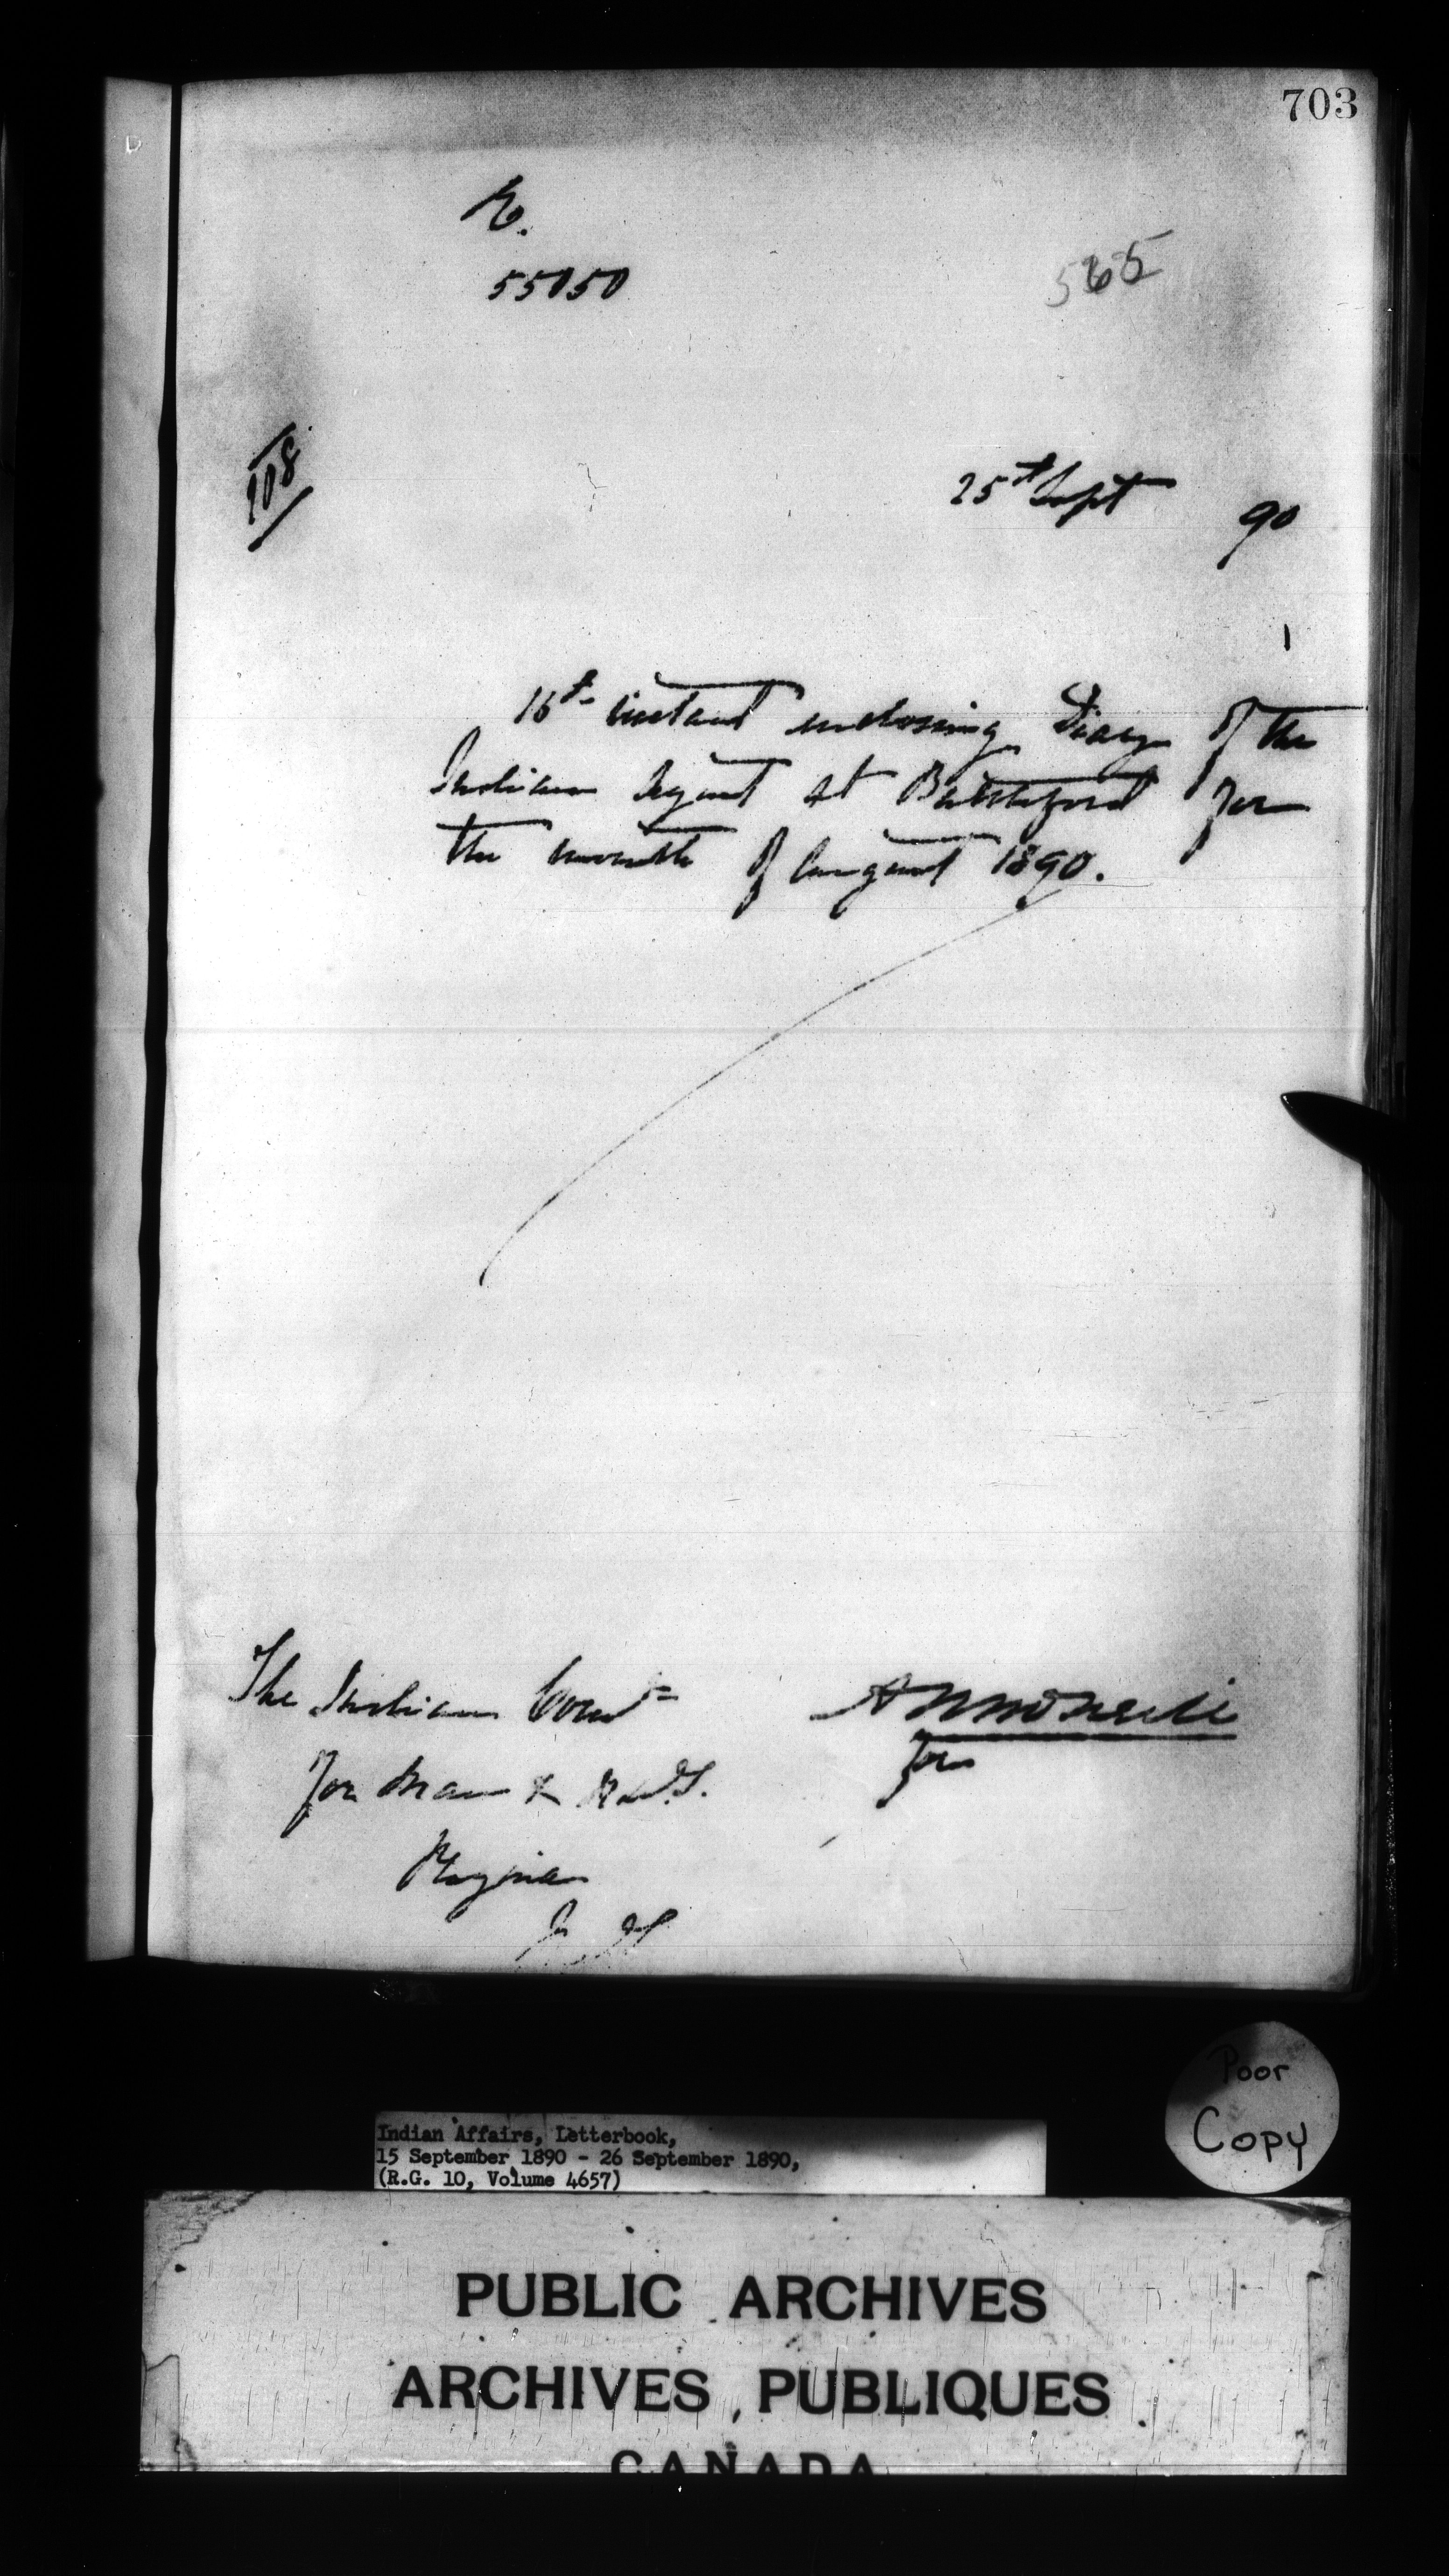 703
55050
565
108
25th Sept 90
16th instant enclosing Diary of the
Indian Agent at Battleford for
the month of August 1890.
The Indian Comr
for Man & N.W.T.
Regina
for
Poor
Copy
Indian Affairs, Letterbook,
15 September 1890 - 26 September 1890,
(R.G. 10, Volume 4657)
PUBLIC ARCHIVES
ARCHIVES PUBLIQUES
CANADA